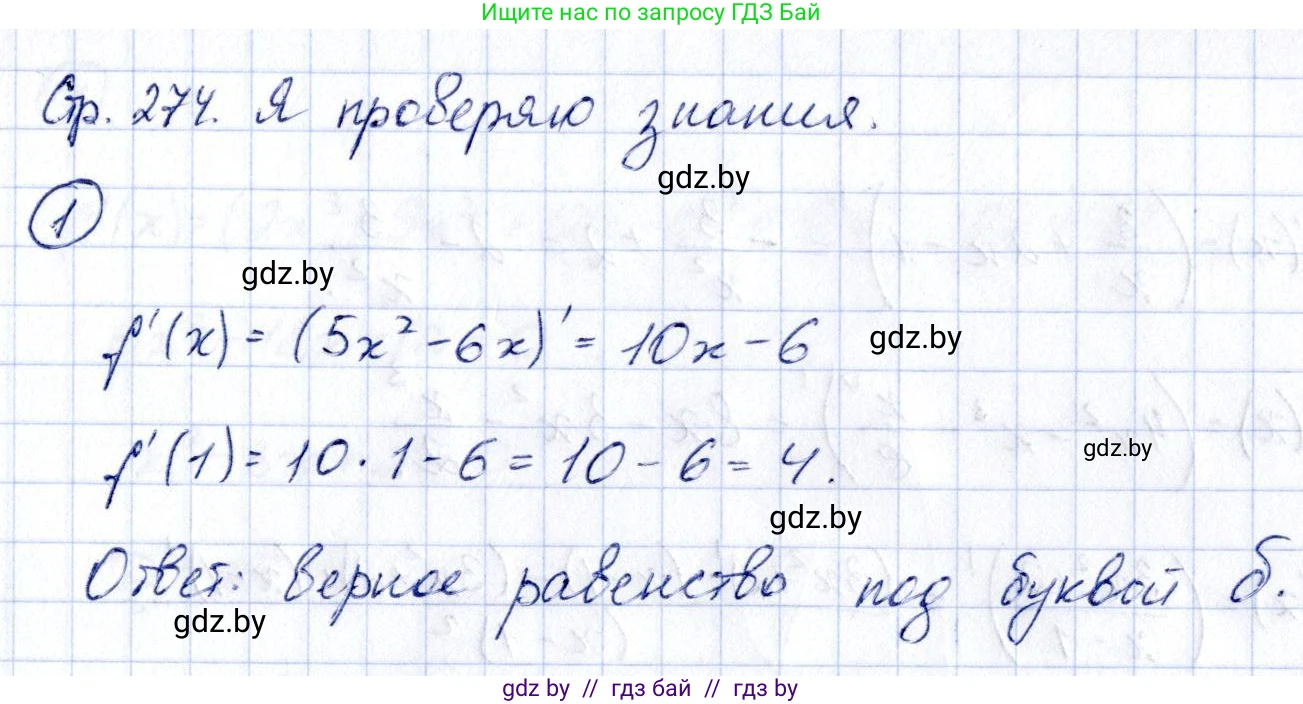 Ищите нас по запросу ГДЗ Бай
Стр. 274. Я проверяю знания.
gdz.by
1
gdz.by
f'(x) = (5x² - 6x)' = 10x - 6
gdz.by
f'(1) = 10 · 1 - 6 = 10 - 6 = 4.
gdz.by
gdz.by
Ответ: верное равенство под буквой б.
gdz.by
gdz by // гдз бай // гдз by